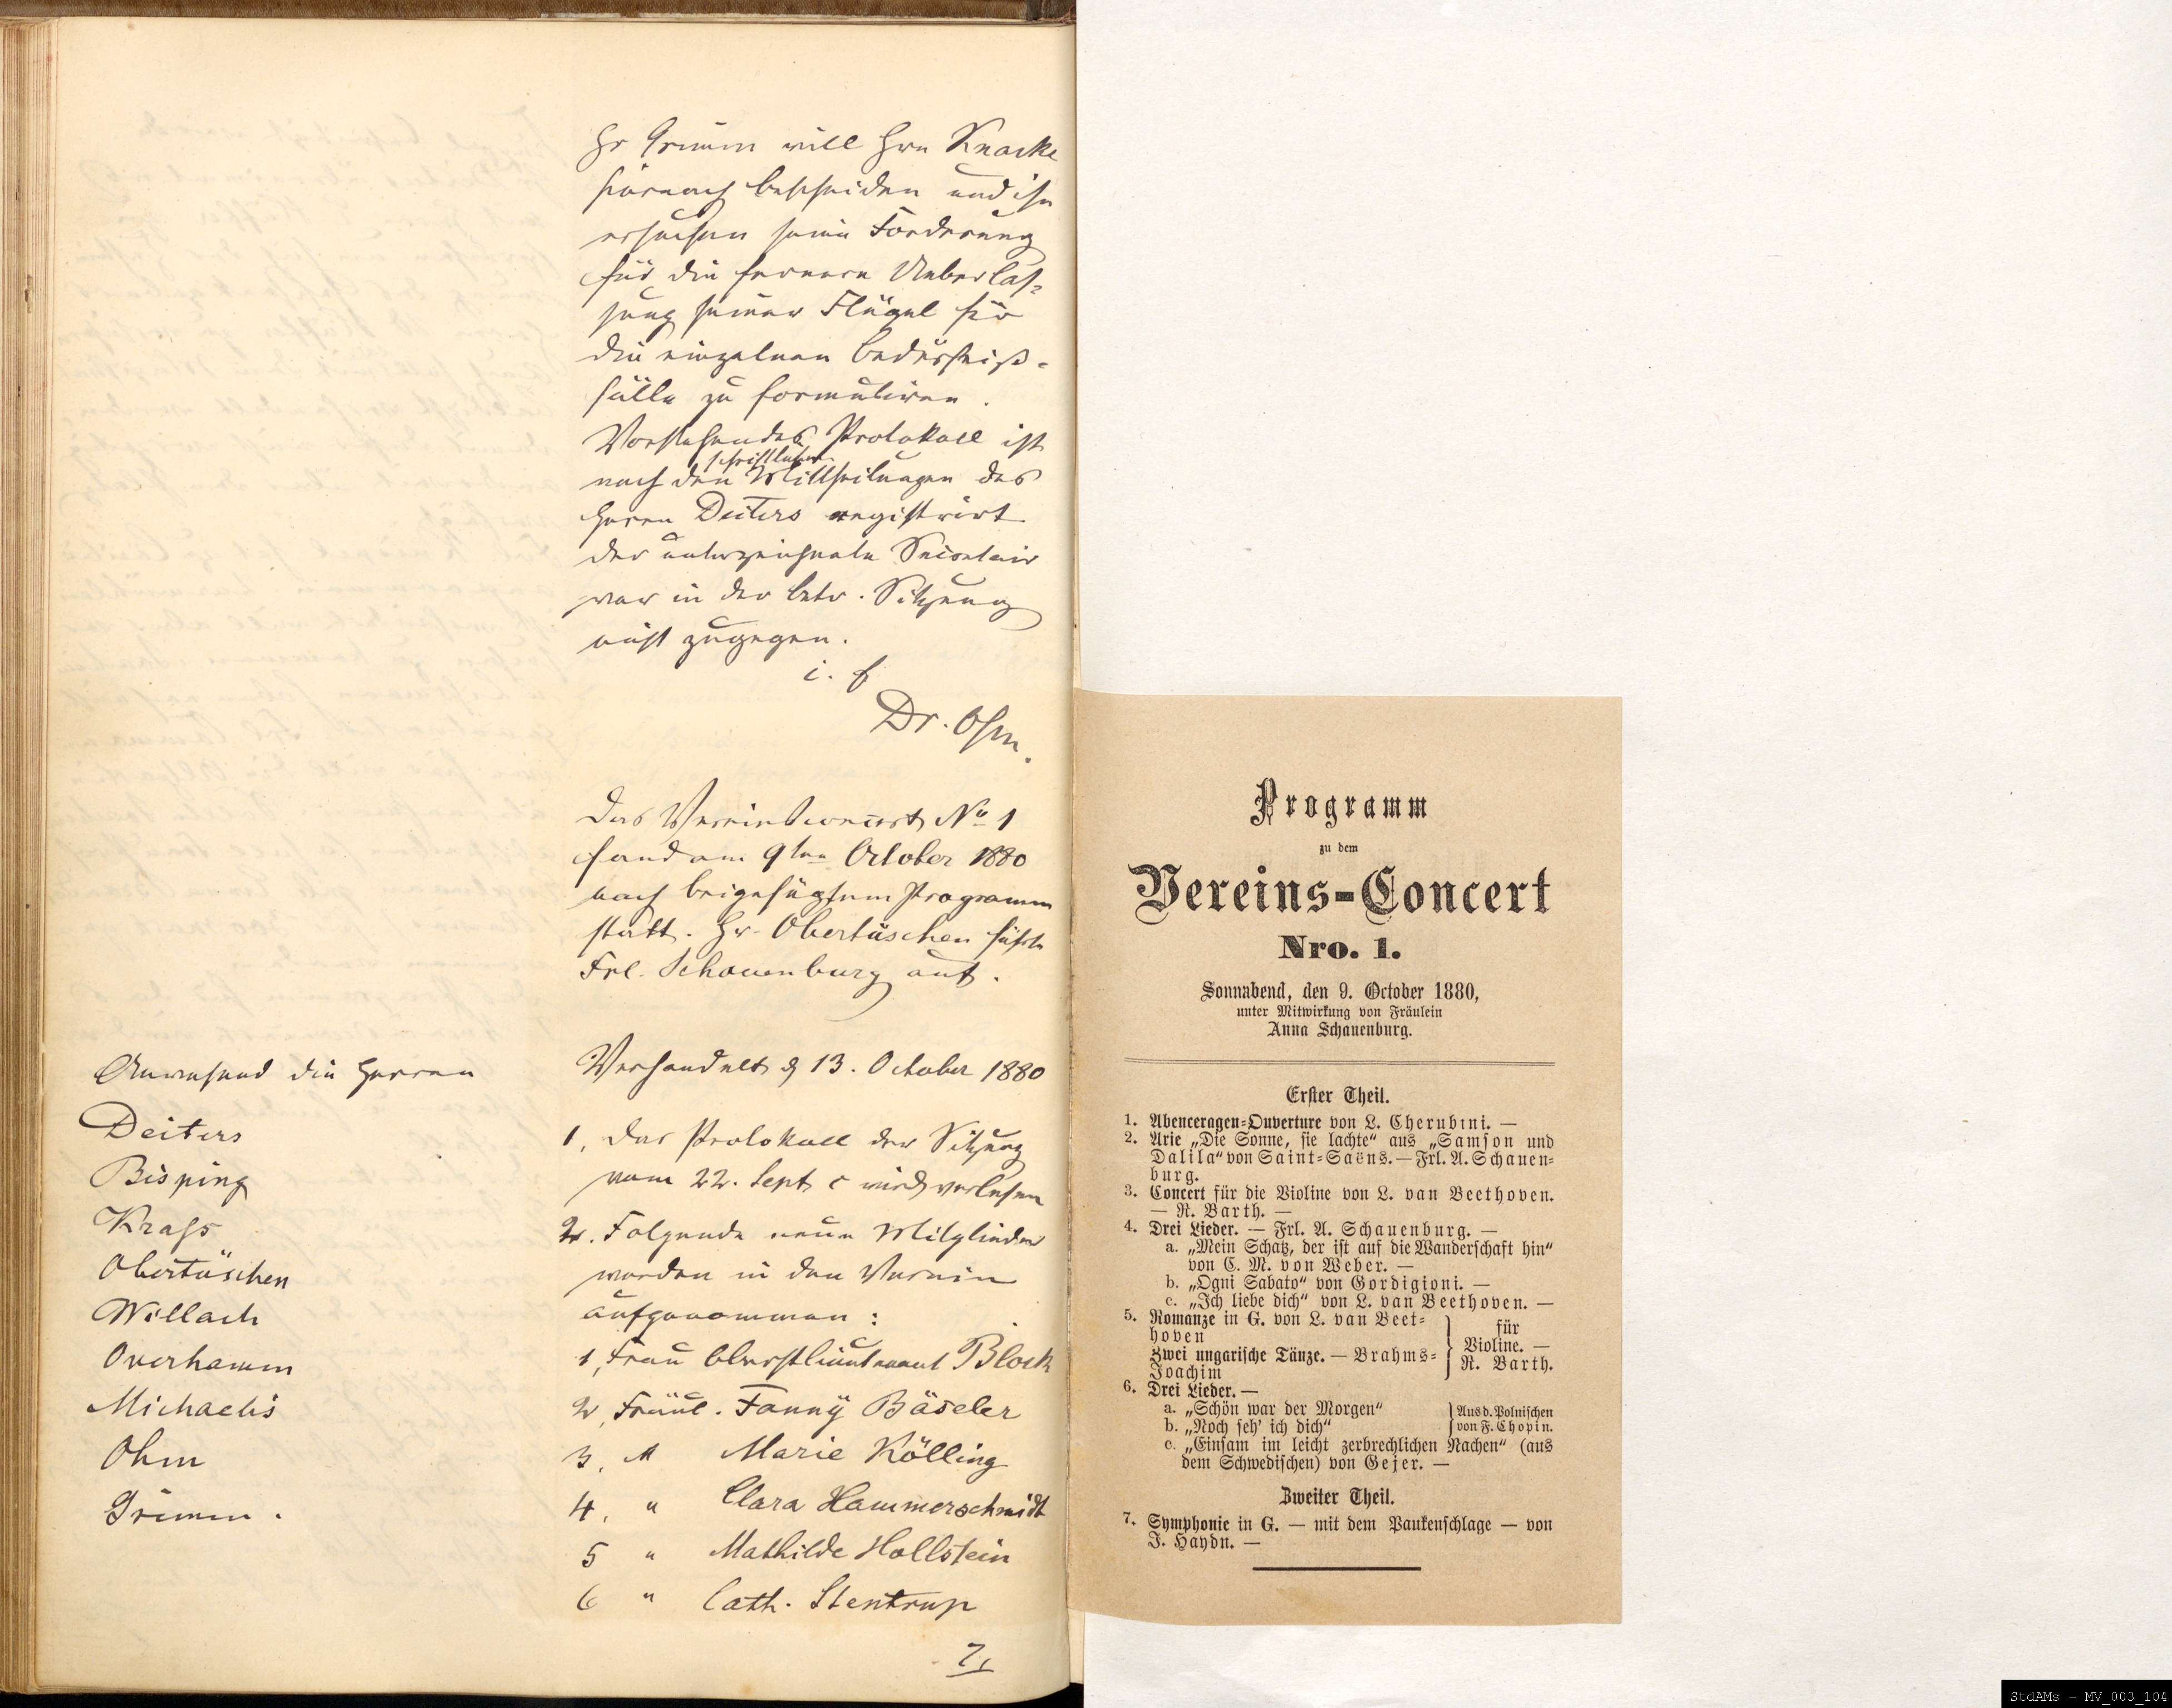 Hr Grimm will Hrn Knacke
hiernach bescheiden und ihn
ersuchen seine Forderung
für die fernere Ueberlas-
sung seiner Flügel für
die einzelnen Bedürfniß-
fälle zu formuliren.
Vorstehendes Protokoll ist
schriftlichen
nach den Mittheilungen des
Herrn Deiters registrirt
der unterzeichnete Secretair
war in der betr. Sitzung
nicht zugegen.
Dr. Ohm.
Das Vereinsconcert No 1
fand am 9ten October 1880
nach beigefügtem Programm
statt. Hr. Obertüschen führte
Frl. Schauenburg auf.
Anwesend die Herren
Deiters
Bisping
Krass
Obertüschen
Willach
Overhamm
Michaelis
Ohm
Grimm.
Verhandelt d 13. October 1880
1, Das Protokoll der Sitzung
vom 22. Sept c wird verlesen
2. Folgende neue Mitglieder
werden in den Verein
aufgenommen :
1, Frau Oberstlieutenant Block
2, Fräul. Fanny Bäseler
3, " Marie Kölling
4, " Clara Hammerschmidt
5 " Mathilde Hollstein
6 " Cath. Stentrup
7,
Programm
zu dem
Vereins-Concert
Nro. 1.
Sonnabend, den 9. October 1880,
unter Mitwirkung von Fräulein
Anna Schauenburg.
Erster Theil.
1. Abenceragen-Ouverture von L. Cherubini. —
2. Arie „Die Sonne, sie lachte“ aus „Samson und
Dalila“ von Saint-Saëns. — Frl. A. Schauen-
burg.
3. Concert für die Violine von L. van Beethoven.
— R. Barth. —
4. Drei Lieder. — Frl. A. Schauenburg. —
a. „Mein Schatz, der ist auf die Wanderschaft hin“
von C. M. von Weber. —
b. „Ogni Sabato“ von Gordigioni. —
c. „Ich liebe dich“ von L. van Beethoven. —
5. Romanze in G. von L. van Beet-
hoven
Zwei ungarische Tänze. — Brahms-
Joachim
für
Violine. —
R. Barth.
6. Drei Lieder. —
a. „Schön war der Morgen“
b. „Noch seh' ich dich“
Aus d. Polnischen
von F. Chopin.
c. „Einsam im leicht zerbrechlichen Nachen“ (aus
dem Schwedischen) von Gejer. —
Zweiter Theil.
7. Symphonie in G. — mit dem Paukenschlage — von
J. Haydn. —
StdAMs - MV_003_104